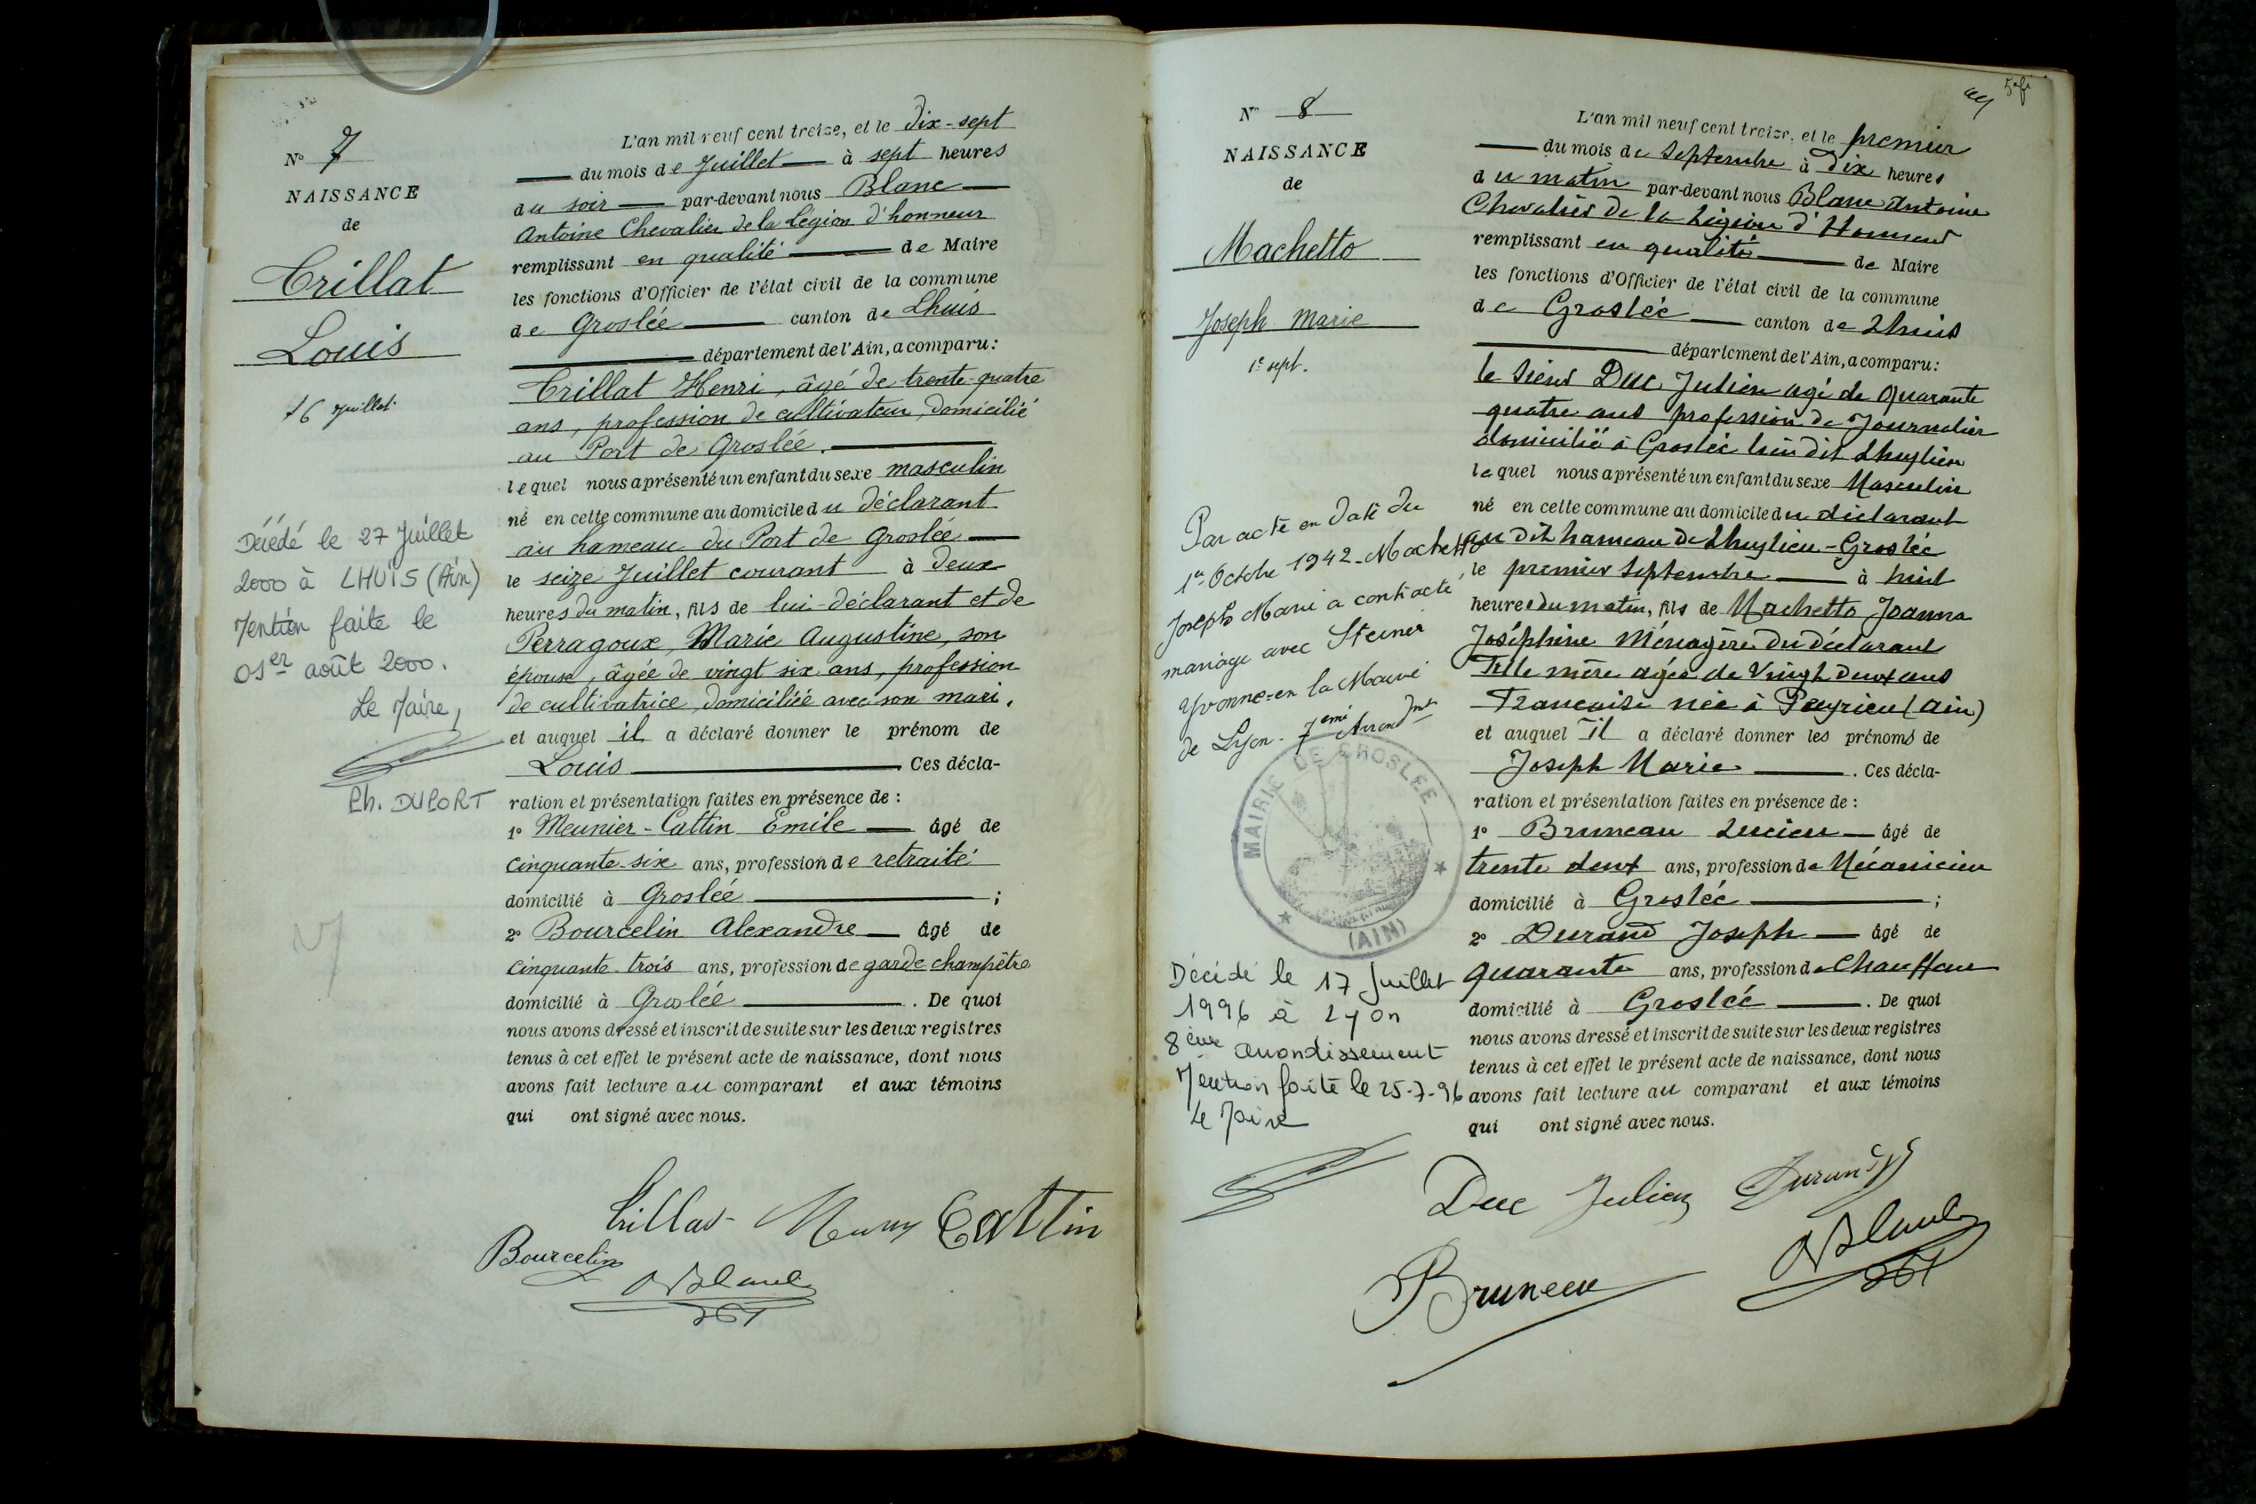 N° 7
NAISSANCE
de
Trillat
Louis
16 Juillet
Décédé le 27 Juillet
2000 à LHUIS (Ain)
Mention faite le
01er août 2000.
Le Maire,
Ph. DUPORT
L'an mil neuf cent treize, et le dix-sept
du mois de Juillet à sept heures
du soir par-devant nous Blanc
Antoine Chevalier de la légion d'honneur
remplissant en qualité de Maire
les fonctions d'Officier de l'état civil de la commune
de Groslée canton de Lhuis
département de l'Ain, a comparu:
Trillat Henri, âgé de trente-quatre
ans, profession de cultivateur, domicilié
au Port de Groslée.
lequel nous a présenté un enfant du sexe masculin
né en cette commune au domicile du déclarant
au hameau du Port de Groslée
le seize Juillet courant à deux
heures du matin, fils de lui-déclarant et de
Perragoux, Marie Augustine, son
épouse, âgée de vingt six ans, profession
de cultivatrice, domiciliée avec son mari.
et auquel il a déclaré donner le prénom de
Louis Ces décla-
ration et présentation faites en présence de :
1° Meunier-Cattin Emile âgé de
cinquante-six ans, profession de retraité
domicilié à Groslée ;
2° Bourcelin Alexandre âgé de
cinquante-trois ans, profession de garde champêtre
domicilié à Groslée . De quoi
nous avons dressé et inscrit de suite sur les deux registres
tenus à cet effet le présent acte de naissance, dont nous
avons fait lecture au comparant et aux témoins
qui ont signé avec nous.
Trillat Meunier Cattin
Bourcelin
A Blanc
N° 8
NAISSANCE
de
Machetto
Joseph Marie
1e sept.
Par acte en date du
1er Octobre 1942 - Machetto
Joseph Marie a contracté
mariage avec Steiner
Yvonne - en la Mairie
de Lyon - 7ème Arrondmt
MAIRIE DE GROSLEE
(AIN)
Décédé le 17 Juillet
1996 à Lyon
8ème arrondissement
Mention faite le 25-7-96
Le Maire
L'an mil neuf cent treize, et le premier
du mois de Septembre à Dix heures
du matin par-devant nous Blanc Antoine
Chevalier de la Légion d'Honneur
remplissant en qualité de Maire
les fonctions d'Officier de l'état civil de la commune
de Groslée canton de Lhuis
département de l'Ain, a comparu:
le Sieur Duc Julien agé de Quarante
quatre ans profession de Journalier
domicilié à Groslée lieu dit Lhuylieu
lequel nous a présenté un enfant du sexe Masculin
né en cette commune au domicile du déclarant
au dit hameau de Lhuylieu - Groslée
le premier Septembre à huit
heures du matin, fils de Machetto Joanna
Joséphine Ménagère du déclarant
fille mère agée de Vingt Deux ans
Française née à Peyrieu (Ain)
et auquel il a déclaré donner les prénoms de
Joseph Marie . Ces décla-
ration et présentation faites en présence de :
1° Bruneau Lucien âgé de
trente deux ans, profession de Mécanicien
domicilié à Groslée ;
2° Durand Joseph âgé de
quarante ans, profession de Chauffeur
domicilié à Groslée . De quoi
nous avons dressé et inscrit de suite sur les deux registres
tenus à cet effet le présent acte de naissance, dont nous
avons fait lecture au comparant et aux témoins
qui ont signé avec nous.
Duc Julien Durand
A Blanc
Bruneau